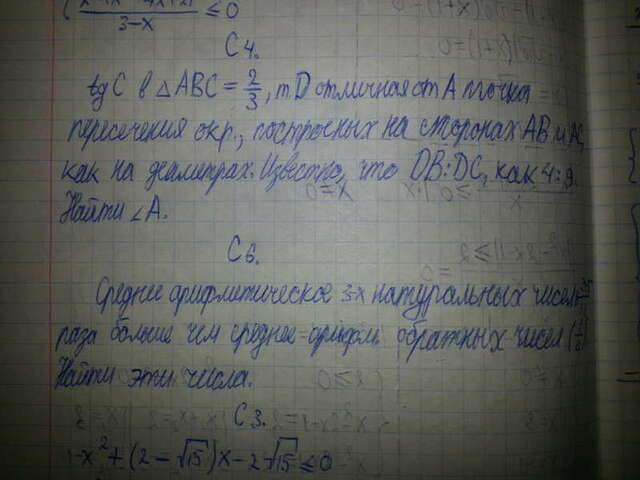 3-x ≤ 0
C4.
tg C в △ABC = 2/3, т.D отличная от A точка
пересечения окр., построчных на сторонах AB и AC,
как на диаметрах. Известно, что DB:DC, как 4:9.
Найти ∠A.
C6.
Среднее арифметическое 3-х натуральных чисел в
раза больше чем среднее арифм. обратных чисел
Найти эти числа.
C3.
-x² + (2 - √15)x - 2√15 ≤ 0